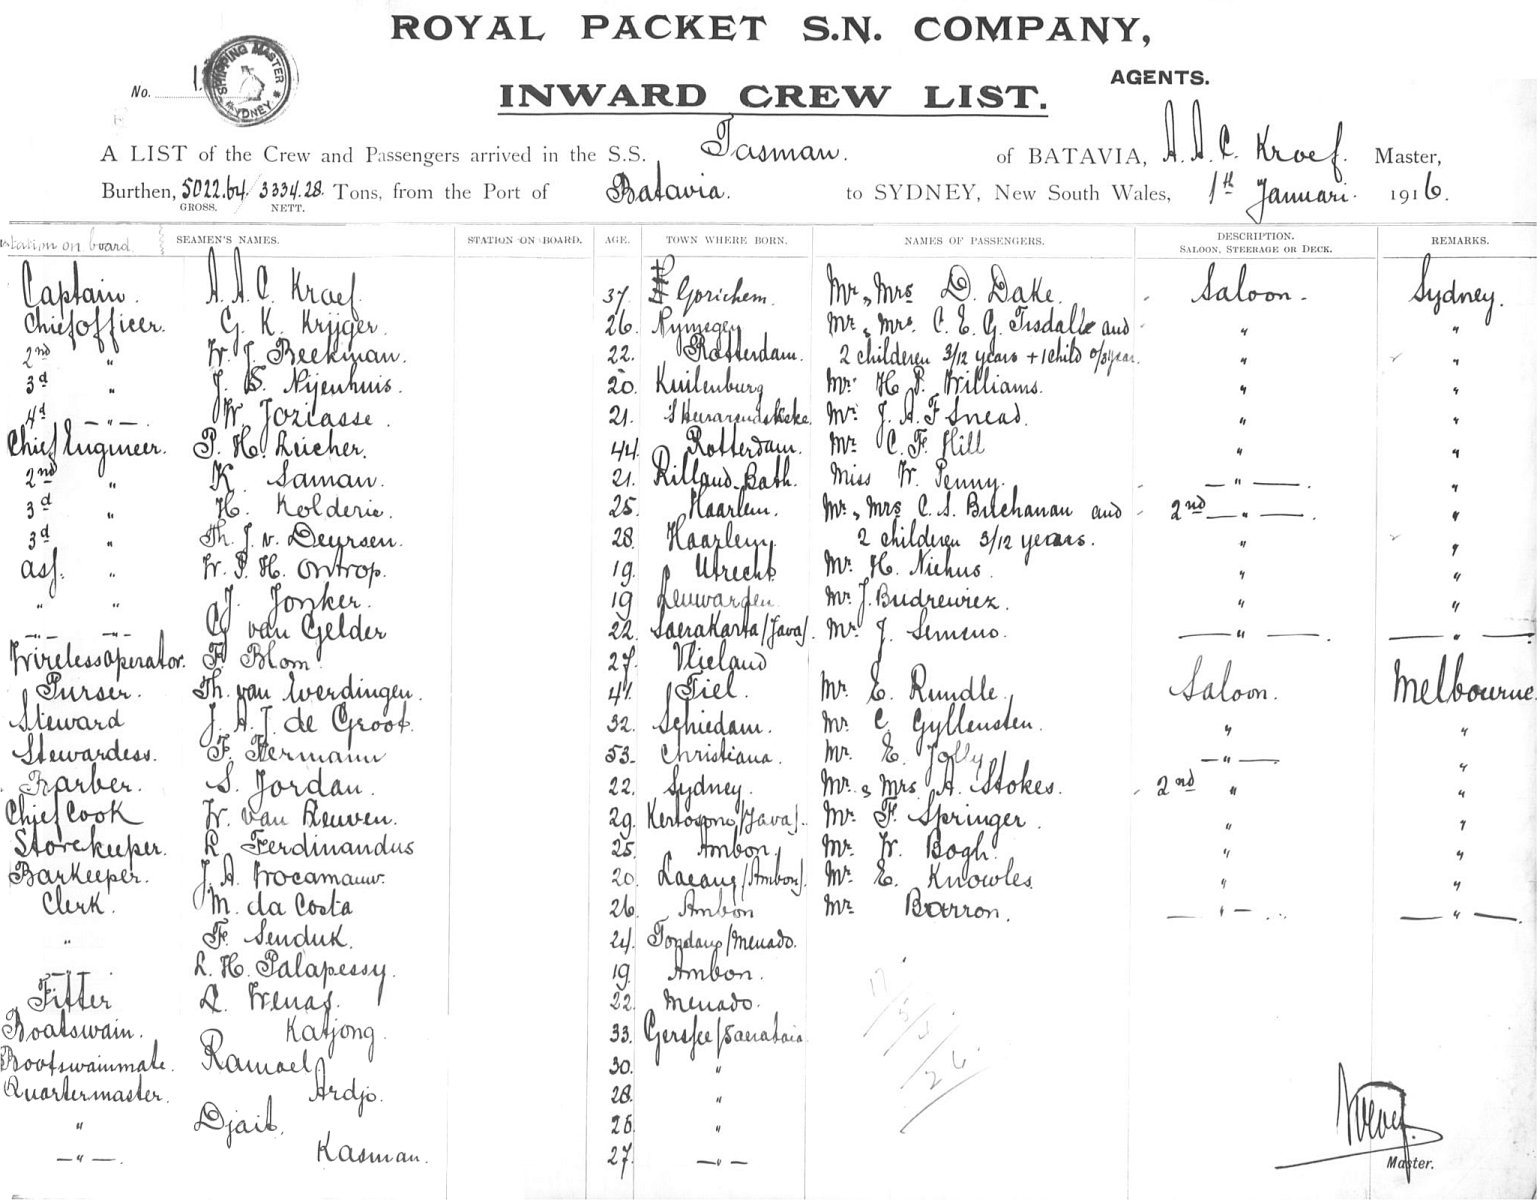 ROYAL PACKET S.N. COMPANY,
AGENTS.
No. 1
SHIPPING MASTER SYDNEY
INWARD CREW LIST.
A LIST of the Crew and Passengers arrived in the S.S. Tasman. of BATAVIA, A. A. C. Kroef. Master,
Burthen, 5022.64 / 3334.28 Tons, from the Port of Batavia. to SYDNEY, New South Wales, 1th Januari. 1916.
GROSS. NETT.
Station on board SEAMEN'S NAMES. STATION ON BOARD. AGE. TOWN WHERE BORN. NAMES OF PASSENGERS. DESCRIPTION. SALOON, STEERAGE OR DECK. REMARKS.
Captain. A. A. C. Kroef. 37. Gorichem. Mr. , Mrs D. Dake. Saloon. Sydney.
Chief officer. G. K. Krijger. 26. Nymegen Mr. , Mrs. C. E. G. Tisdalle and " "
2nd " W. J. Beekman. 22. Rotterdam. 2 childeren 3/12 years + 1 child 0/3 year. " "
3d " J. B. Nijenhuis. 20. Kuilenburg Mr. H. P. Williams. " "
4d — " —. W. Joziasse. 21. Mr. J. A. F Snead. " "
Chief Engineer. P. H. Leicher. 44. Rotterdam. Mr. C. F. Hill " "
2nd " K. Saman. 21. Rilland-Bath. Miss W. Penny. — " — "
3d " H. Kolderie. 25. Haarlem. Mr. , Mrs C. S. Buchanan and 2nd — " — "
3d " Th. J. v. Deursen. 28. Haarlem. 2 childeren 3/12 years. " "
ass. " W. P. H. Ontrop. 19. Utrecht Mr. H. Niehus. " "
" " J. Jonker. 19 Leuwarden Mr. J. Budrewiez. " "
— " — — " — C. van Gelder 22. Soerakarta (Java). Mr. J. Semeno. — " — — " —
Wireless operator. F. Blom. 27. Vlieland
Purser. Th. van Everdingen. 41. Tiel. Mr. E. Rundle. Saloon. Melbourne.
Steward J. A. J. de Groot. 32. Schiedam. Mr. C. Gyllensten. " "
Stewardess. F. Hermann 53. Christiana. Mr. E. Jolly — " — "
Barber. S. Jordan. 22. Sydney. Mr. , Mrs. A. Stokes. 2nd " "
Chief Cook W. van Leuven. 29. Kertosono (Java). Mr. F. Springer. " "
Storekeeper. R. Ferdinandus 25. Ambon. Mr. W. Bogh. " "
Barkeeper. J. A. 20. (Ambon). Mr. E. Knowles. " "
Clerk. M. da Costa 26. Ambon Mr. Barron. — " — — " —
" F. Senduk. 24. /Menado.
— " —. L. H. Palapessy. 19. Ambon.
Fitter A. Wenas. 22. Menado.
Boatswain. Katjong. 33.
Bootswainmate. Ramoel 30. "
Quartermaster. Ardjo. 28. "
" Djait. 26. "
— " —. Kasman. 27. — " —
17
5
4
26
Kroef.
Master.